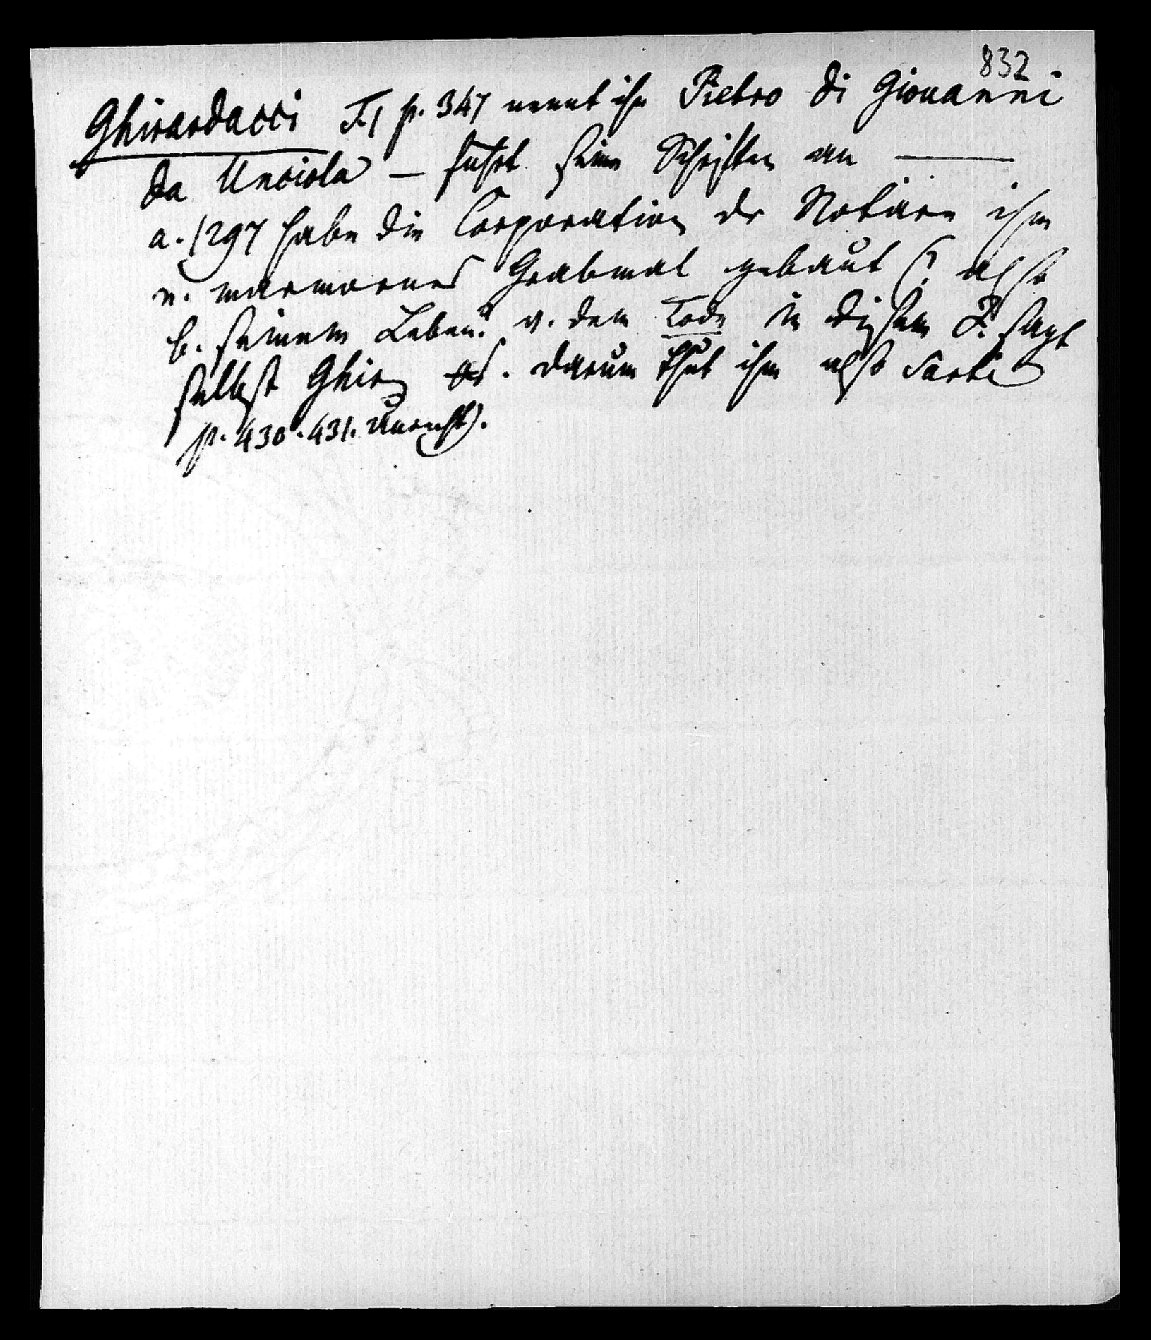 832
Ghirardacci T. I p. 347 nennt ihn Pietro di Giovanni
da Unciola — führt seine Schriften an —
a. 1297 habe die Corporation der Notare ihm
e. marmornes Grabmal gebaut (? also
b. seinem Leben? v. dem Tode in diesem J. sagt
selbst Ghir. . darum thut ihm also Sarti
p. 430. 431. Unrecht).